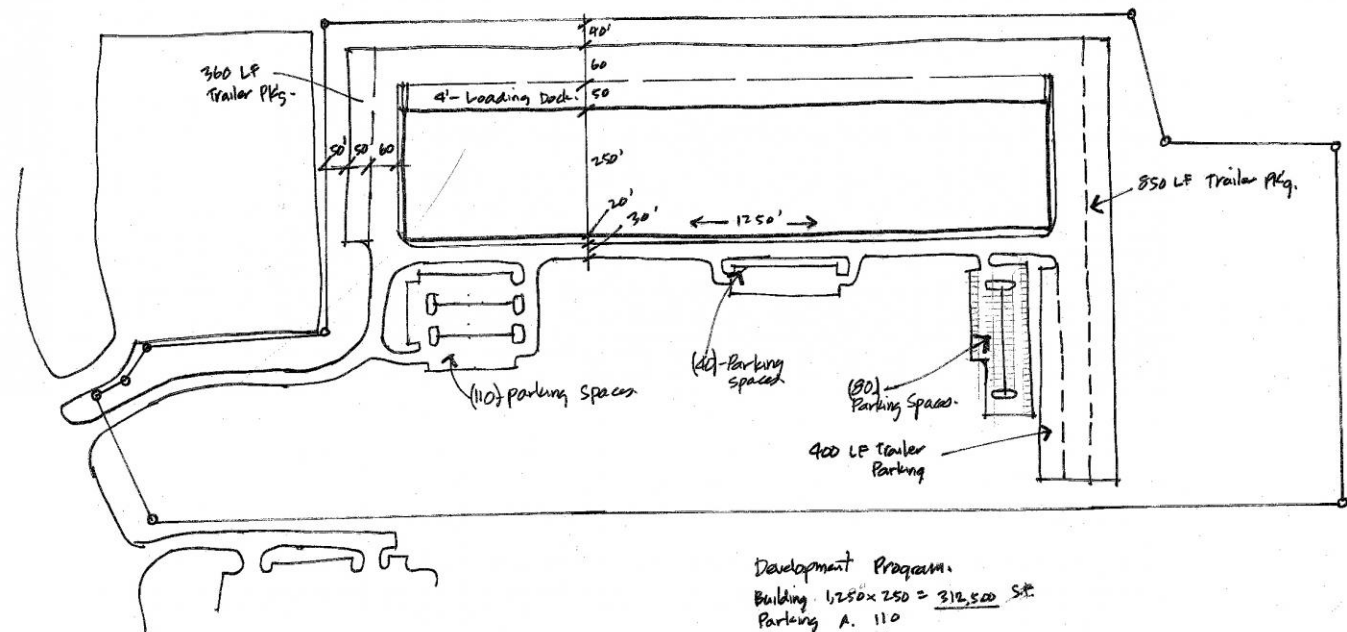 40'
360 LF
Trailer Pkg.
60
4'- Loading Dock.
50
50' 50' 60
250'
850 LF Trailer Pkg.
20'
30'
1250'
(110) parking spaces.
(40)-Parking
spaces
(80)
Parking Spaces.
400 LF Trailer
Parking
Development Program.
Building 1,250 x 250 = 312,500 S.F.
Parking A. 110